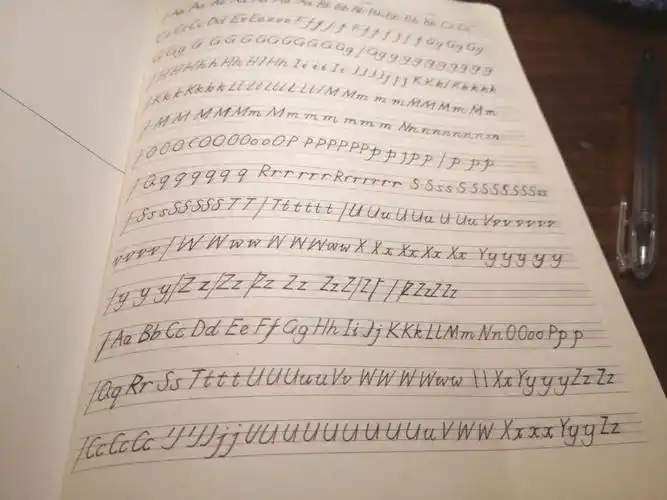 Aa Aa Aa
Cc Cc Cc Dd Ee Ee e e e F f f f f F f f f f f f Gg Gg Gg
G G g G G G G G G G G G G g / G g g g g g g g g g g
H H H h h H h H l H h I i t t I i J J J J j j j K K k l K k k k k
K k k K k k k L l L l L l L l L l L l / M M m m m M M M m M m
M M M M M m M m m m m m m N n n n n n n n n
O O O C O O O O o o O P P P P P P P P p p J P P / p p p
Q q q q q q q R r r r r r R r r r r r r S S s s S S S S S S S s s
S s s S S S S S T T / T t t t t t / U U u U U u U U u V v v v v v v
v v v v / W W w w W W W w w X X x X x X x X x Y y y y y y
y y y / Z z / Z z / Z z Z z Z z Z / Z / Z z Z z Z z
A a B b C c D d E e F f G g H h I i J j K K k L l M m N n O O o o P p p
Q q R r S s T t t t U U U u u V v W W W W w w \ \ X x Y y y y Z z Z z
C c C c C c J J J J j j U U U U U U U U U U u V W W X x x x Y y y Z z